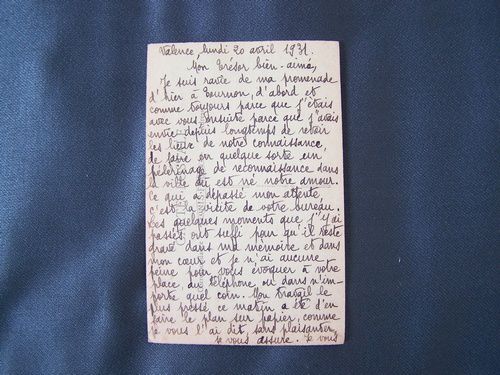 Valence, lundi 20 avril 1931.
Mon trésor bien-aimé,
Je suis ravie de ma promenade
d'hier à Tournon, d'abord et
comme toujours parce que j'étais
avec vous ensuite parce que j'avais
envie depuis longtemps de revoir
les lieux de notre connaissance,
de faire en quelque sorte un
pélérinage de reconnaissance dans
la ville où est né notre amour.
Ce qui a dépassé mon attente,
c'est la visite de votre bureau.
Les quelques moments que j'y ai
passés ont suffi pour qu'il reste
gravé dans ma mémoire et dans
mon cœur et je n'ai aucune
peine pour vous évoquer à votre
place, au téléphone ou dans n'im-
porte quel coin. Mon travail le
plus pressé ce matin a été d'en
faire le plan sur papier, comme
je vous l'ai dit sans plaisanter,
je vous assure. Je vous